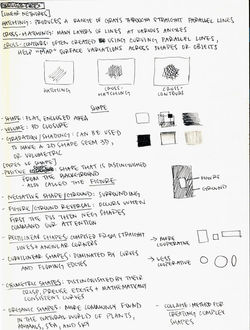 [LINEAR NETWORKS]
HATCHING: PRODUCES A RANGE OF GRAYS THROUGH STRAIGHT PARALLEL LINES
CROSS-HATCHING: MANY LAYERS OF LINES AT VARIOUS ANGLES
CROSS-CONTOURS: OFTEN CREATED USING CURVING PARALLEL LINES,
HELP "MAP" SURFACE VARIATIONS ACROSS SHAPES OR OBJECTS
HATCHING
CROSS-HATCHING
CROSS-CONTOURS
SHAPE
SHAPE: FLAT, ENCLOSED AREA
VOLUME: 3D ENCLOSURE
GRADATION/SHADING: CAN BE USED
TO MAKE A 2D SHAPE SEEM 3D,
OR VOLUMETRIC
[TYPES OF SHAPE]
POSITIVE SHAPE THAT IS DISTINGUISHED
FROM THE BACKGROUND
- ALSO CALLED THE FIGURE
FIGURE
GROUND
NEGATIVE SHAPE/GROUND: SURROUNDING
FIGURE/GROUND REVERSAL: OCCURS WHEN
FIRST THE POS THEN NEG SHAPES
COMMAND OUR ATTENTION
RECTILINEAR SHAPES: COMPOSED FROM STRAIGHT
LINES & ANGULAR CORNERS
MORE COOPERATIVE
CURVILINEAR SHAPES: DOMINATED BY CURVES
AND FLOWING EDGES
LESS COOPERATIVE
GEOMETRIC SHAPES: DISTINGUISHED BY THEIR
CRISP, PRECISE EDGES & MATHEMATICALLY
CONSISTENT CURVES
ORGANIC SHAPES: MORE COMMONLY FOUND
IN THE NATURAL WORLD OF PLANTS,
ANIMALS, SEA, AND SKY
- COLLAGE: METHOD FOR
CREATING COMPLEX
SHAPES